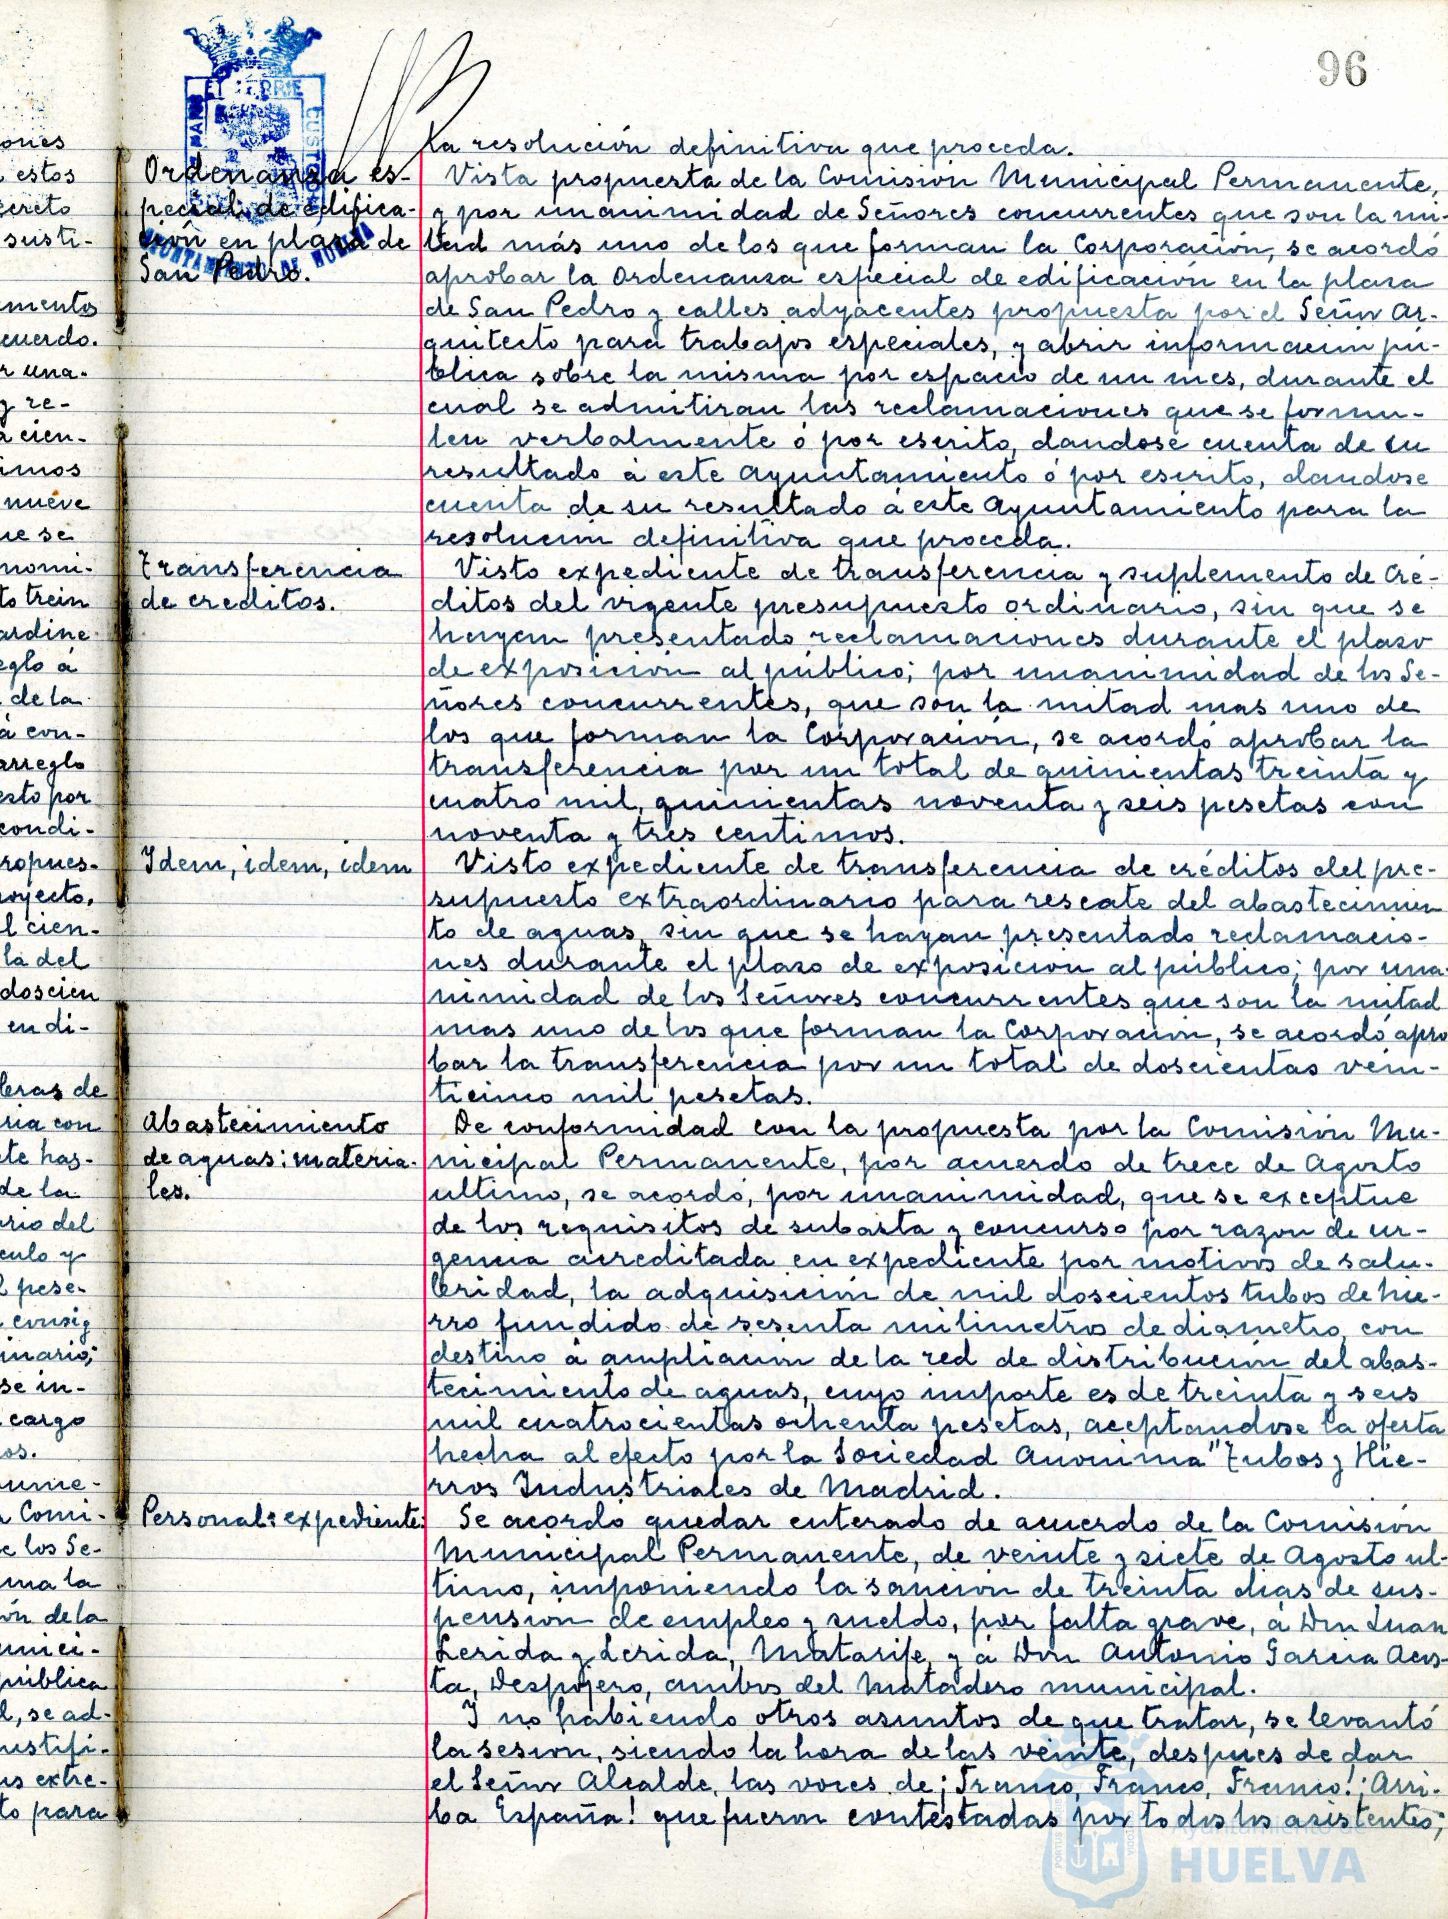 96
la resolución definitiva que proceda.
Ordenanza es-
pecial de edifica-
ción en plaza de
San Pedro.
Vista propuesta de la Comisión Municipal Permanente,
y por unanimidad de Señores concurrentes que son la mi-
tad más uno de los que forman la Corporación, se acordó
aprobar la Ordenanza especial de edificación en la plaza
de San Pedro y calles adyacentes propuesta por el Señor Ar-
quitecto para trabajos especiales, y abrir información pú-
blica sobre la misma por espacio de un mes, durante el
cual se admitiran las reclamaciones que se formu-
len verbalmente ó por escrito, dandose cuenta de su
resultado á este Ayuntamiento ó por escrito, dandose
cuenta de su resultado á este Ayuntamiento para la
resolución definitiva que proceda.
Transferencia
de creditos.
Visto expediente de transferencia y suplemento de cré-
ditos del vigente presupuesto ordinario, sin que se
hayan presentado reclamaciones durante el plazo
de exposición al público; por unanimidad de los Se-
ñores concurrentes, que son la mitad mas uno de
los que forman la Corporación, se acordó aprobar la
transferencia por un total de quinientas treinta y
cuatro mil, quinientas noventa y seis pesetas con
noventa y tres centimos.
Idem, idem, idem
Visto expediente de transferencia de créditos del pre-
supuesto extraordinario para rescate del abastecimien
to de aguas, sin que se hayan presentado reclamacio-
nes durante el plazo de exposición al público; por una-
nimidad de los Señores concurrentes que son la mitad
mas uno de los que forman la Corporación, se acordó apro
bar la transferencia por un total de doscientas vein-
ticinco mil pesetas.
Abastecimiento
de aguas: materia-
les.
De conformidad con la propuesta por la Comisión Mu-
nicipal Permanente, por acuerdo de trece de Agosto
ultimo, se acordó, por unanimidad, que se exceptue
de los requisitos de subasta y concurso por razon de ur-
gencia acreditada en expediente por motivos de salu-
bridad, la adquisición de mil doscientos tubos de hie-
rro fundido de sesenta milimetros de diametro, con
destino á ampliación de la red de distribución del abas-
tecimiento de aguas, cuyo importe es de treinta y seis
mil cuatrocientas ochenta pesetas, aceptandose la oferta
hecha al efecto por la Sociedad Anonima "Tubos y Hie-
rros Industriales de Madrid.
Personal: expediente:
Se acordo quedar enterado de acuerdo de la Comisión
Municipal Permanente, de veinte y siete de Agosto ul-
timo, imponiendo la sanción de treinta dias de sus-
pension de empleo y sueldo, por falta grave, á Don Juan
Lerida y Lerida, Matarife, y á Don Antonio Garcia Acos-
ta, Despojero, ambos del Matadero municipal.
Y no habiendo otros asuntos de que tratar, se levantó
la sesion, siendo la hora de las veinte, despues de dar
el Señor Alcalde, las voces de ¡Franco, Franco, Franco! ¡Arri-
ba España! que fueron contestadas por todos los asistentes;
Ayuntamiento de
HUELVA